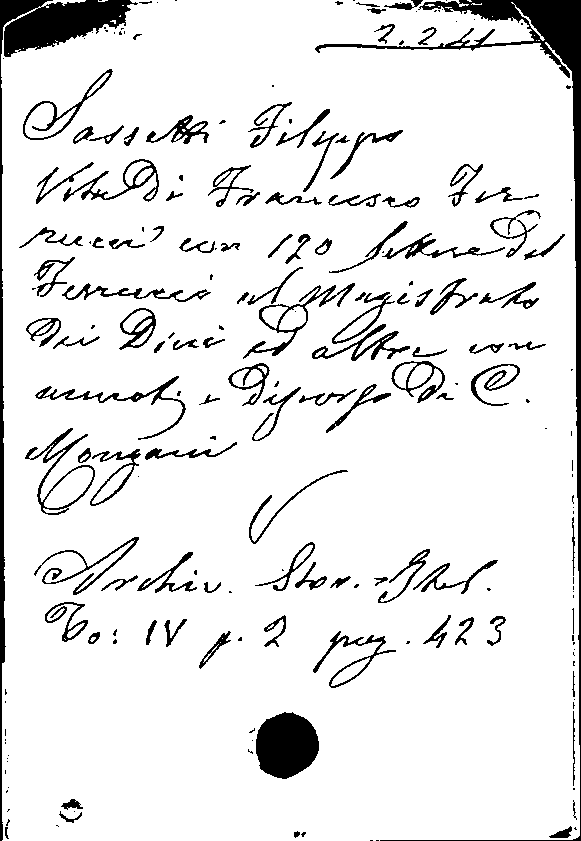 2.2.41
Sassetti Filippo
Vita Di Francesco Fer
rucci con 120 lettere del
Ferrucci al Magistrato
dei Dieci ed altre con
annot. e Discorso Di C.
Monzani
Archiv. Stor. Ital.
To: IV p. 2 pag. 423